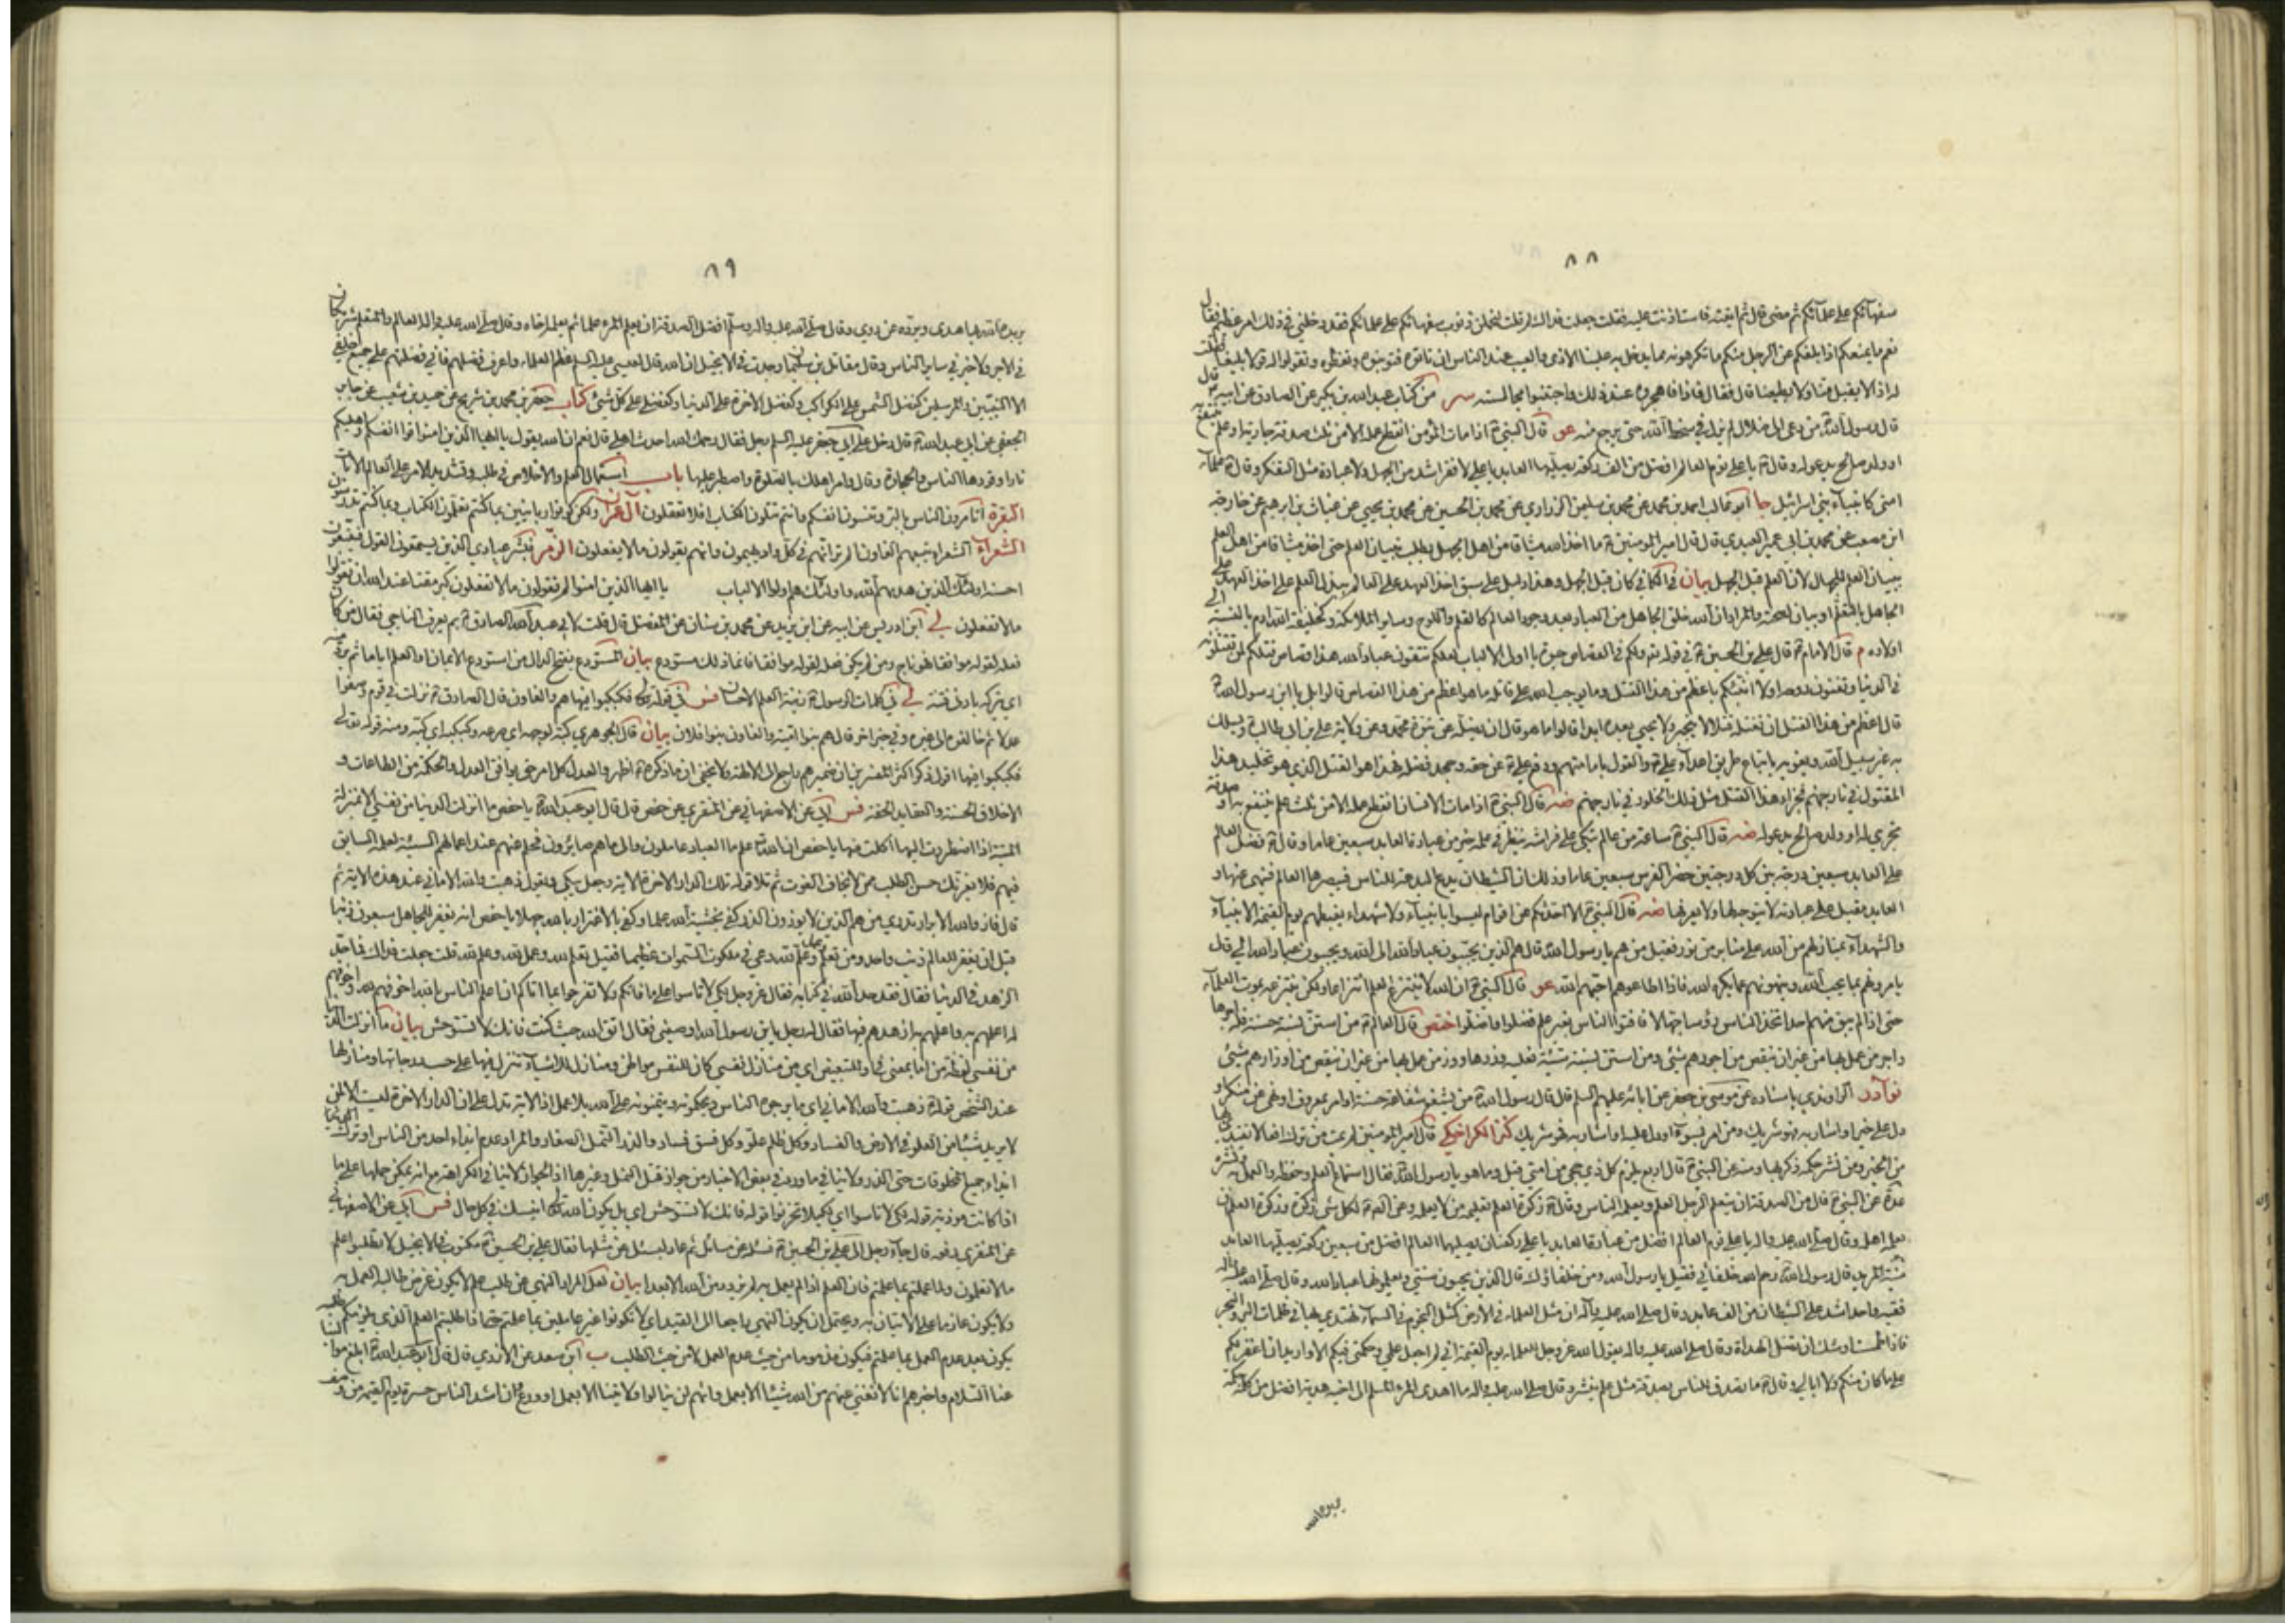 ٨٨
سفهائكم على علمائكم ثم مضى قال ثم لقيته فاستاذنت عليه فقلت جعلت فداك لم قلت لتحملن ذنوب سفهائكم على علمائكم فقد دخلني في ذلك امر عظيم فقال
نعم ما يمنعكم اذا بلغكم عن الرجل منكم ما تكرهونه مما يدخل به علينا الاذى والعيب عند الناس ان تاتوه فتونبوه وتعظوه وتقولوا له قولا بليغا فقلت
له اذا لا يقبل منا ولا يطيعنا قال فقال فاذا فاهجروه عند ذلك واجتنبوا مجالسته سر من كتاب عبد الله بن بكير عن الصادق عن ابيه ع قال
قال رسول الله من دعى الى ضلال لم يزل في سخط الله حتى يرجع منه غو قال النبي ص اذا مات المؤمن انقطع عمله الا من ثلث صدقة جارية او علم ينتفع به
او ولد صالح يدعو له وقال ص يا علي نوم العالم افضل من الف ركعة يصليها العابد يا علي لا فقر اشد من الجهل ولا عبادة مثل التفكر وقال ص علماء
امتي كانبياء بني اسرائيل جا ابو غالب احمد بن محمد عن محمد بن سليمن الزراري عن محمد بن الحسين عن محمد بن يحيى عن غياث بن ابرهيم عن خارجة
ابن مصعب عن محمد بن ابي عمير العبدي قال قال امير المومنين ع ما اخذ الله ميثاقا من اهل الجهل بطلب تبيان العلم حتى اخذ ميثاقا من اهل العلم
ببيان العلم للجهال لان العلم قبل الجهل بيان في الكافي كان قبل الجهل وهذا دليل على سبق اخذ العهد على العالم ببذل العلم على اخذ العهد على
الجاهل بالتعلم او بيان لصحته والمراد ان الله خلق الجاهل من العباد بعد وجود العالم كالقلم واللوح وساير الملائكة وكخليفة الله ادم بالنسبة الى
اولاده م قال الامام ع قال علي بن الحسين ع في قوله تع ولكم في القصاص حيوة يا اولى الالباب لعلكم تتقون عباد الله هذا قصاص قتلكم لمن تقتلونه
في الدنيا وتفنون روحه اولا انبئكم باعظم من هذا القتل وما يوجب الله على قاتله ما هو اعظم من هذا القصاص قالوا بلى يا ابن رسول الله
قال اعظم من هذا القتل ان تقتله قتلا لا ينجبر ولا يحيى بعده ابدا قالوا ما هو قال ان يضله عن نبوة محمد وعن ولاية علي بن ابي طالب ويسلك
به غير سبيل الله ويغويه باتباع طريق اعداء علي والقول بامامتهم ودفع علي عن حقه وجحد فضله فهذا هو القتل الذي هو تخليد هذا
المقتول في نار جهنم فجزاء هذا القتل مثل ذلك الخلود في نار جهنم ضه قال النبي ص اذا مات الانسان انقطع عمله الا من ثلث علم ينتفع به او صدقة
تجري له او ولد صالح يدعو له ضه قال النبي ص ساعة من عالم يتكى على فراشه ينظر في عمله خير من عبادة العابد سبعين عاما وقال ص فضل العالم
على العابد سبعين درجة بين كل درجتين حضر الفرس سبعين عاما وذلك ان الشيطان يدع البدعة للناس فيبصرها العالم فنهى عنها و
العابد مقبل على عبادته لا يتوجه لها ولا يعرفها ضه قال النبي ص الا احدثكم عن اقوام ليسوا بانبياء ولا شهداء يغبطهم يوم القيمة الانبياء
والشهداء بمنازلهم من الله على منابر من نور فقيل من هم يا رسول الله قال هم الذين يحببون عباد الله الى الله ويحببون عباد الله الي قال
يامرونهم بما يحب الله وينهونهم عما يكره الله فاذا اطاعوهم احبهم الله غو قال النبي ص ان الله لا ينتزع العلم انتزاعا ولكن ينتزعه بموت العلماء
حتى اذا لم يبق منهم احد اتخذ الناس رؤساء جهالا فافتوا الناس بغير علم فضلوا واضلوا ختص قال العالم ع من استن بسنة حسنة فله اجرها
واجر من عمل بها من غير ان ينقص من اجورهم شيئ ومن استن بسنة سيئة فعليه وزرها ووزر من عمل بها من غير ان ينقص من اوزارهم شيئ
نوادر الراوندي باسناده عن موسى بن جعفر عن ابائه عليهم السلم قال قال رسول الله من يشفع شفاعة حسنة او امر بمعروف او نهى عن منكر او
دل على خير او اشار به فهو شريك ومن امر بسوء او دل عليه او اشار به فهو شريك كنز الكراجكي قال امير المومنين لم يمت من ترك افعالا تقتدى بها
من الخير ومن نشر حكمة ذكر بها وعنه عن النبي ص قال اربع يلزم كل ذي حجى من امتي قيل وما هو يا رسول الله فقال استماع العلم وحفظه والعمل به ونشره
عدة عن النبي ص قال من الصدقة ان يتعلم الرجل العلم ويعلمه الناس وقال ص زكوة العلم تعليمه من لا يعلمه وعن الصادق ع لكل شئ زكوة وزكوة العلم ان
يعلمه اهله وقال صلى الله عليه واله يا علي نوم العالم افضل من عبادة العابد يا علي ركعتان يصليهما العالم افضل من سبعين ركعة يصليها العابد
منية المريد قال رسول الله رحم الله خلفائي فقيل يا رسول الله ومن خلفاؤك قال الذين يحيون سنتي ويعلمونها عباد الله وقال صلى الله عليه واله
فقيه واحد اشد على الشيطان من الف عابد وقال صلى الله عليه وآله ان مثل العلماء في الارض كمثل النجوم في السماء يهتدى بها في ظلمات البر والبحر
فاذا طمست اوشك ان تضل الهداة وقال صلى الله عليه واله يقول الله عز وجل للعلماء يوم القيمة اني لم اجعل علمي وحكمتي فيكم الا وانا اريد ان اغفر لكم
على ما كان منكم ولا ابالي وقال ص ما تصدق الناس بصدقة مثل علم ينشر وقال صلى الله عليه واله ما اهدى المرء المسلم الى اخيه هدية افضل من كلمة حكمة
٨٩
يزيده الله بها هدى ويرده عن ردى وقال صلى الله عليه واله وسلم افضل الصدقة ان يعلم المرء علما ثم يعلمه اخاه وقال صلى الله عليه واله العالم والمتعلم شريكان
في الاجر ولا خير في ساير الناس وقال مقاتل بن سليمان وجدت في الانجيل ان الله قال لعيسى عليه السلم عظم العلماء واعرف فضلهم فاني فضلتهم على جميع خلقي
الا النبيين والمرسلين كفضل الشمس على الكواكب وكفضل الاخرة على الدنيا وكفضلي على كل شئ كتاب جعفر بن محمد بن شريح عن حميد بن شعيب عن جابر
الجعفي عن ابي عبد الله ع قال دخل على ابي جعفر عليه السلم رجل فقال رحمك الله احدث اهلي قال نعم ان الله يقول يا ايها الذين امنوا قوا انفسكم واهليكم
نارا وقودها الناس والحجارة وقال وامر اهلك بالصلوة واصطبر عليها باب استعمال العلم والاخلاص في طلبه وتشديد الامر على العالم الايات
البقرة اتامرون الناس بالبر وتنسون انفسكم وانتم تتلون الكتاب افلا تعقلون آل عمران ولكن كونوا ربانيين بما كنتم تعلمون الكتاب وبما كنتم تدرسون
الشعراء الشعراء يتبعهم الغاون الم تر انهم في كل واد يهيمون وانهم يقولون ما لا يفعلون الزمر فبشر عبادي الذين يستمعون القول فيتبعون
احسنه اولئك الذين هديهم الله واولئك هم اولوا الالباب يا ايها الذين امنوا لم تقولون ما لا تفعلون كبر مقتا عند الله ان تقولوا
ما لا تفعلون لي ابن ادريس عن ابيه عن ابن يزيد عن محمد بن سنان عن المفضل قال قلت لابي عبد الله الصادق ع بم يعرف الناجي فقال من كان
فعله لقوله موافقا فهو ناج ومن لم يكن فعله لقوله موافقا فانما ذلك مستودع بيان المستودع بفتح الدال من استودع الايمان او العلم اياما ثم يسلب منه
اي يتركه بادنى فتنة لي في كلمات الرسول ص زينة العلم الاحسان فس في قوله تع فكبكبوا فيها هم والغاون قال الصادق ع نزلت في قوم وصفوا
عدلا ثم خالفوه الى غيره وفي خبر اخر قال هم بنو امية والغاون بنو فلان بيان قال الجوهري كبه لوجهه اي صرعه وكبكبه اي كبه ومنه قوله تعالى
فكبكبوا فيها اقول ذكر اكثر المفسرين ان ضمير هم راجع الى الالهة ولا يخفى ان ما ذكره ع اظهر والعدل كل امر حق يوافق العدل والحكمة من الطاعات و
الاخلاق الحسنة والعقايد الحقة فس ابي عن الاصفهاني عن المنقري عن حفص قال قال ابو عبد الله يا حفص ما انزلت الدنيا من نفسي الا بمنزلة
الميتة اذا اضطررت اليها اكلت منها يا حفص ان الله تع علم ما العباد عاملون والى ما هم صايرون فحلم عنهم عند اعمالهم السيئة لعلمه السابق
فيهم فلا يغرنك حسن الطلب ممن لا يخاف الفوت ثم تلا قوله تلك الدار الاخرة الاية وجعل يبكي ويقول ذهبت والله الاماني عند هذه الاية ثم
قال فاز والله الابرار تدري من هم الذين لا يوذون الذر كفى بخشية الله علما وكفى بالاغترار بالله جهلا يا حفص انه يغفر للجاهل سبعون ذنبا
قبل ان يغفر للعالم ذنب واحد ومن تعلم وعمل وعلم لله دعي في ملكوت السموات عظيما فقيل تعلم لله وعمل لله وعلم لله قلت جعلت فداك فما حد
الزهد في الدنيا فقال فقد حد الله في كتابه فقال عز وجل لكي لا تاسوا على ما فاتكم ولا تفرحوا بما اتاكم ان اعلم الناس بالله اخوفهم لله واخوفهم
له اعلمهم به واعلمهم به ازهدهم فيها فقال له رجل يا ابن رسول الله اوصني فقال اتق الله حيث كنت فانك لا تستوحش بيان ما انزلت الدنيا
من نفسي لفظة من اما بمعنى في او للتبعيض اي من منازل نفسي كان للنفس مواطن ومنازل للاشياء تنزل فيها على حسب درجاتها ومنازلها
عند الشخص قوله ع ذهبت والله الاماني اي ما يرجوه الناس ويحكمونه ويتمنونه على الله بلا عمل اذ الاية تدل على ان الدار الاخرة ليست الا لمن
لا يريد شيئا من العلو في الارض والفساد وكل ظلم علو وكل فسق فساد والذر النمل الصغار والمراد عدم ايذاء احد من الناس او ترك
ايذاء جميع المخلوقات حتى الذر ولا ينافي ما ورد في بعض الاخبار من جواز قتل النمل وغيرها اذ الجواز لا ينافي الكراهة مع انه يمكن حملها على ما
اذا كانت موذية قوله لكي لا تاسوا اي لكيلا تحزنوا قوله فانك لا تستوحش اي بل يكون الله تع انيسك في كل حال فس ابي عن الاصفهاني
عن المنقري رفعه قال جاء رجل الى علي بن الحسين ع فسئله عن مسائل ثم عاد ليسئل عن مثلها فقال علي بن الحسين ع مكتوب في الانجيل لا تطلبوا علم
ما لا تعلمون ولما عملتم بما علمتم فان العلم اذا لم يعمل به لم يزدد من الله الا بعدا بيان لعل المراد النهي عن طلب علم لا يكون غرض طالبه العمل به
ولا يكون عازما على الاتيان به ويحتمل ان يكون النهي راجعا الى القيد اي لا تكونوا غير عاملين بما علمتم حتى اذا طلبتم العلم الذي يلزمكم طلبه
يكون بعد عدم العمل بما علمتم فيكون مذموما من حيث عدم العمل لا من حيث الطلب ب ابن سعد عن الازدي قال قال ابو عبد الله ابلغ موالينا
عنا السلام واخبرهم انا لا نغني عنهم من الله شيئا الا بعمل وانهم لن ينالوا ولايتنا الا بعمل او ورع وان اشد الناس حسرة يوم القيمة من وصف